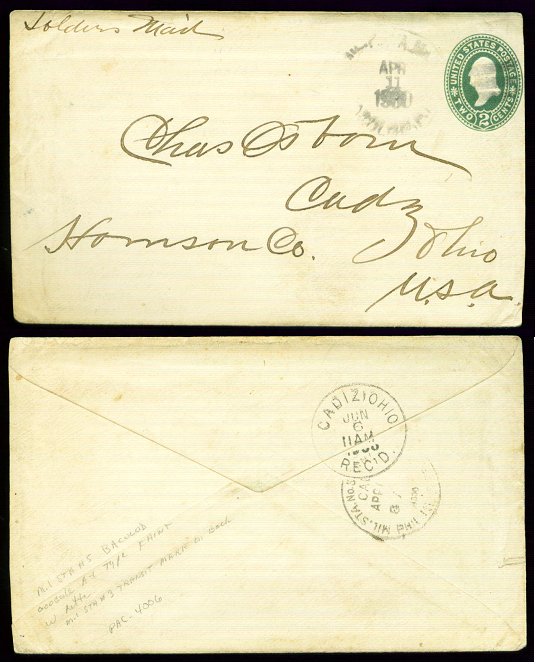 Soldiers Mail
APR
11
1900
UNITED STATES POSTAGE
TWO 2 CENTS
Chas Osborn
Cadiz
Harrison Co. Ohio
U.S.A.
CADIZ, OHIO
JUN
6
11 AM
1900
REC'D.
MIL. STA. NO. 3
APR
MIL. STA #5 BACOLOD
TYPE FAINT
MIL STA #3 TRANSIT MARK ON BACK
PAC-4006